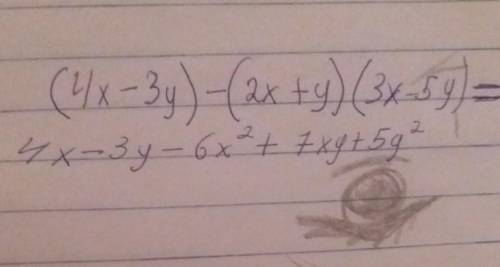 (4x-3y)-(2x+y)(3x-5y)=
4x-3y-6x²+7xy+5y²